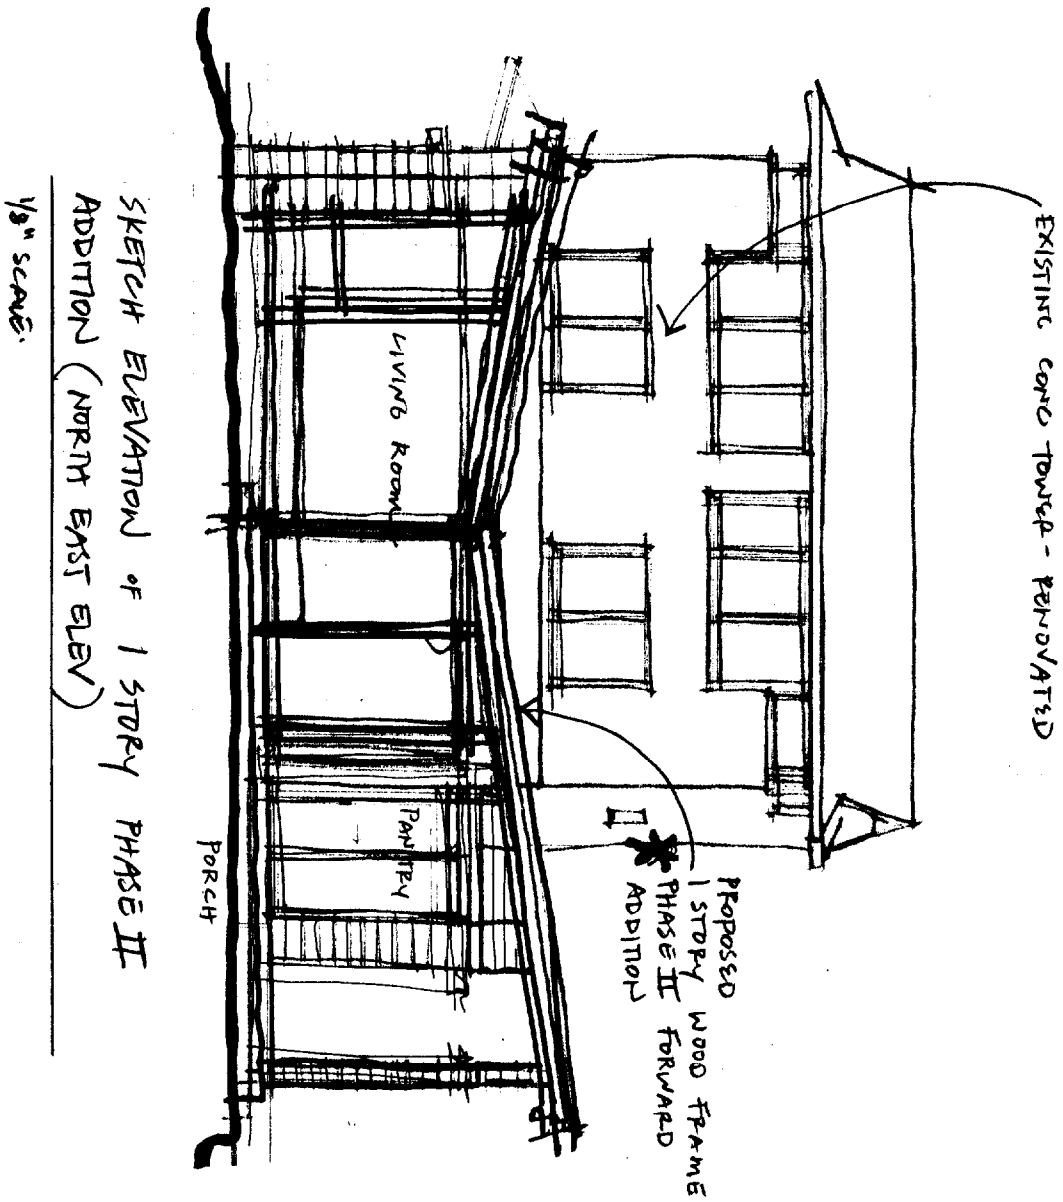 EXISTING CONC TOWER - RENOVATED
PROPOSED
1 STORY WOOD FRAME
PHASE II FORWARD
ADDITION
LIVING ROOM
PANTRY
PORCH
SKETCH ELEVATION OF 1 STORY PHASE II
ADDITION (NORTH EAST ELEV)
1/8" SCALE.